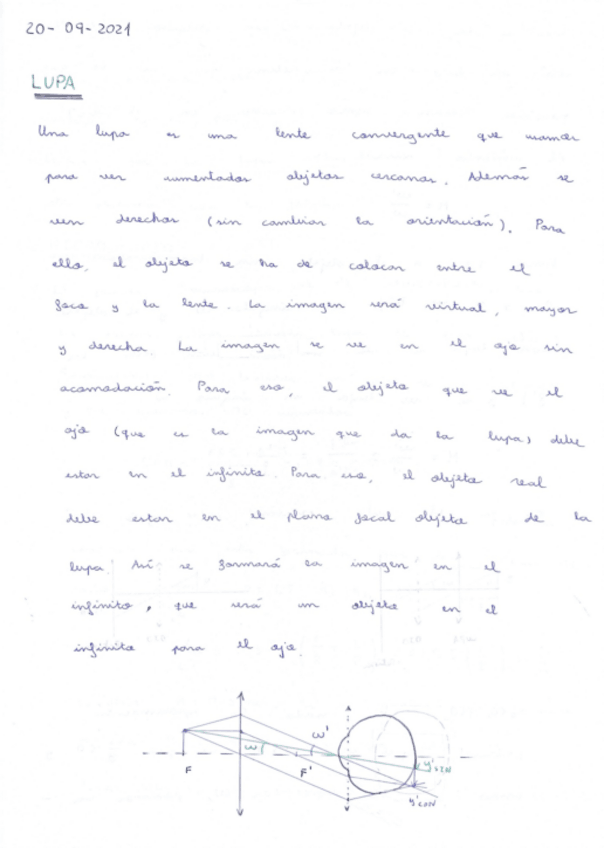 20-09-2021
LUPA
Una lupa es una lente convergente que usamos
para ver aumentados objetos cercanos. Además se
ven derechos (sin cambiar la orientación). Para
ello, el objeto se ha de colocar entre el
foco y la lente. La imagen será virtual, mayor
y derecha. La imagen se ve en el ojo sin
acomodación. Para eso, el objeto que ve el
ojo (que es la imagen que da la lupa) debe
estar en el infinito. Para eso, el objeto real
debe estar en el plano focal objeto de la
lupa. Así se formará la imagen en el
infinito, que será un objeto en el
infinito para el ojo.
ω'
ω
F F'
y'SIN
y'CON